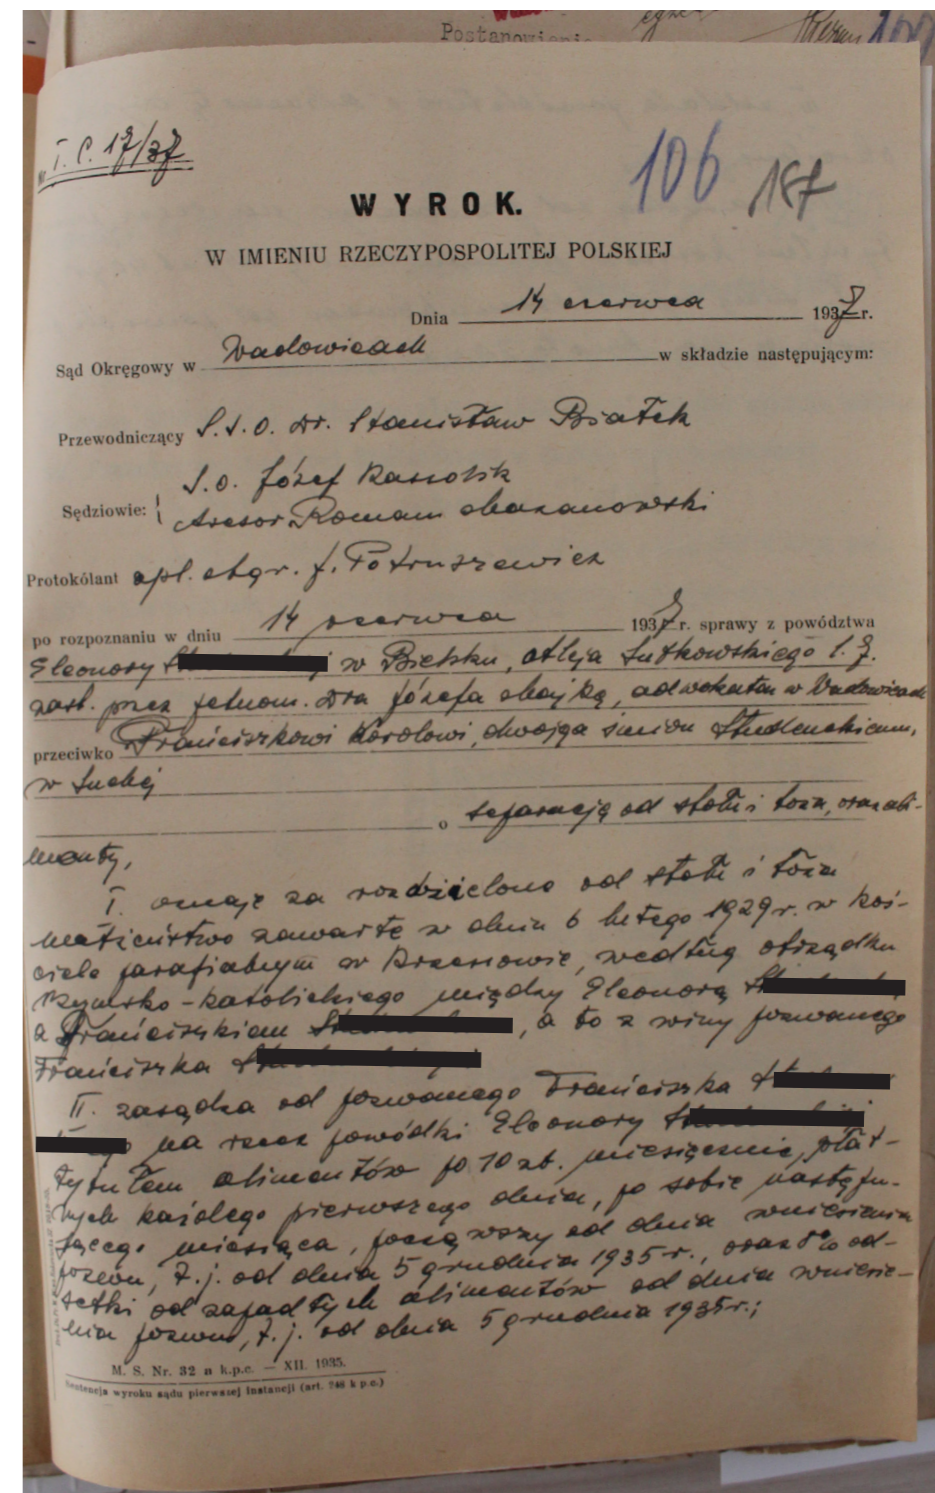 Postanowienie
I. C. 17/37
106 187
WYROK.
W IMIENIU RZECZYPOSPOLITEJ POLSKIEJ
Dnia 14 czerwca 1937 r.
Sąd Okręgowy w Wadowicach w składzie następującym:
Przewodniczący S.S.O. Dr. Stanisław Białek
S.O. Józef
Sędziowie:
Asesor Roman
Protokólant apl. J. Potruszewicz
po rozpoznaniu w dniu 14 czerwca 1937 r. sprawy z powództwa
Eleonory w Bielsku, Aleja Sułkowskiego l. 7.
zast. przez pełnom. Dra Józefa adwokata w Wadowicach
przeciwko Franciszkowi Karolowi, dwojga imion
w Suchej
o separację od stołu i łoża, oraz ali-
menty,
I. uznaje za rozdzielone od stołu i łoża
małżeństwo zawarte w dniu 6 lutego 1929 r. w koś-
ciele parafialnym w Krzeszowie, według obrządku
rzymsko-katolickiego między Eleonorą
a Franciszkiem , a to z winy pozwanego
Franciszka
II. zasądza od pozwanego Franciszka
na rzecz powódki Eleonory
tytułem alimentów po 10 zł. miesięcznie, płat-
nych każdego pierwszego dnia, po sobie następu-
jącego miesiąca, począwszy od dnia wniesienia
pozwu, t.j. od dnia 5 grudnia 1935 r., oraz 5% od-
setki od zapadłych alimentów od dnia wniesie-
nia pozwu, t.j. od dnia 5 grudnia 1935 r.;
M. S. Nr. 32 n k.p.c. — XII. 1935.
Sentencja wyroku sądu pierwszej instancji (art. 348 k p.c.)